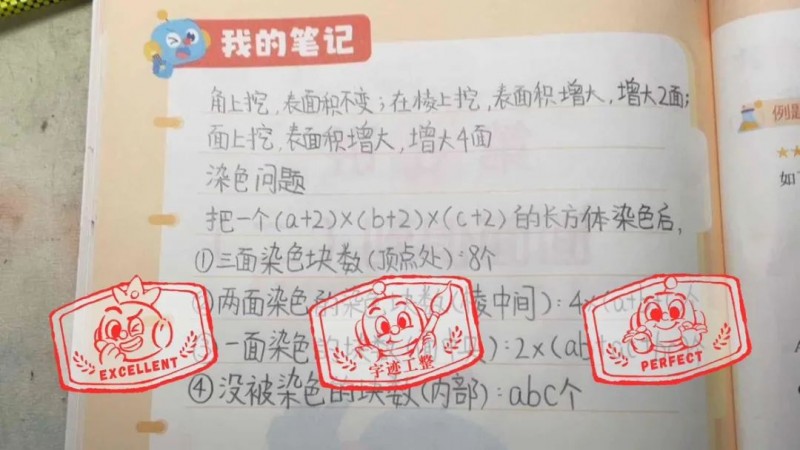 我的笔记
角上挖,表面积不变;在棱上挖,表面积增大,增大2面;
面上挖,表面积增大,增大4面
染色问题
把一个(a+2)×(b+2)×(c+2)的长方体染色后,
①三面染色块数(顶点处):8个
两面染色的 块数(棱中间):4×(a+ 个
一面染色的块 ):2×(ab
④没被染色的块数(内部):abc个
EXCELLENT
字迹工整
PERFECT
例题
★★
如